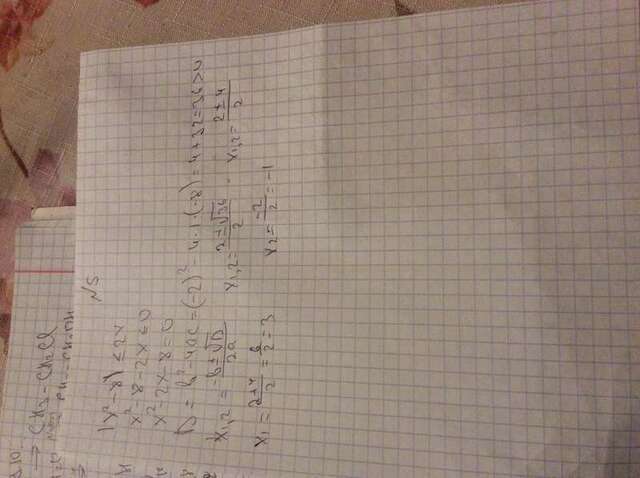 → CH3-CH2Cl
N5
|x²-8| ≤ 2x
x²-8-2x ≤ 0
x²-2x-8=0
D = b²-4ac = (-2)² - 4·1·(-8) = 4+32=36>0
x1,2 = -b±√D/2a x1,2 = 2±√36/2 x1,2 = 2±4/2
x1 = 2+4/2 = 6/2 = 3 x2 = -2/2 = -1